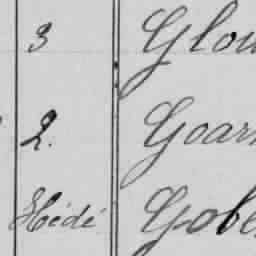 3 Glou
2. Goar
Hédé Gobe